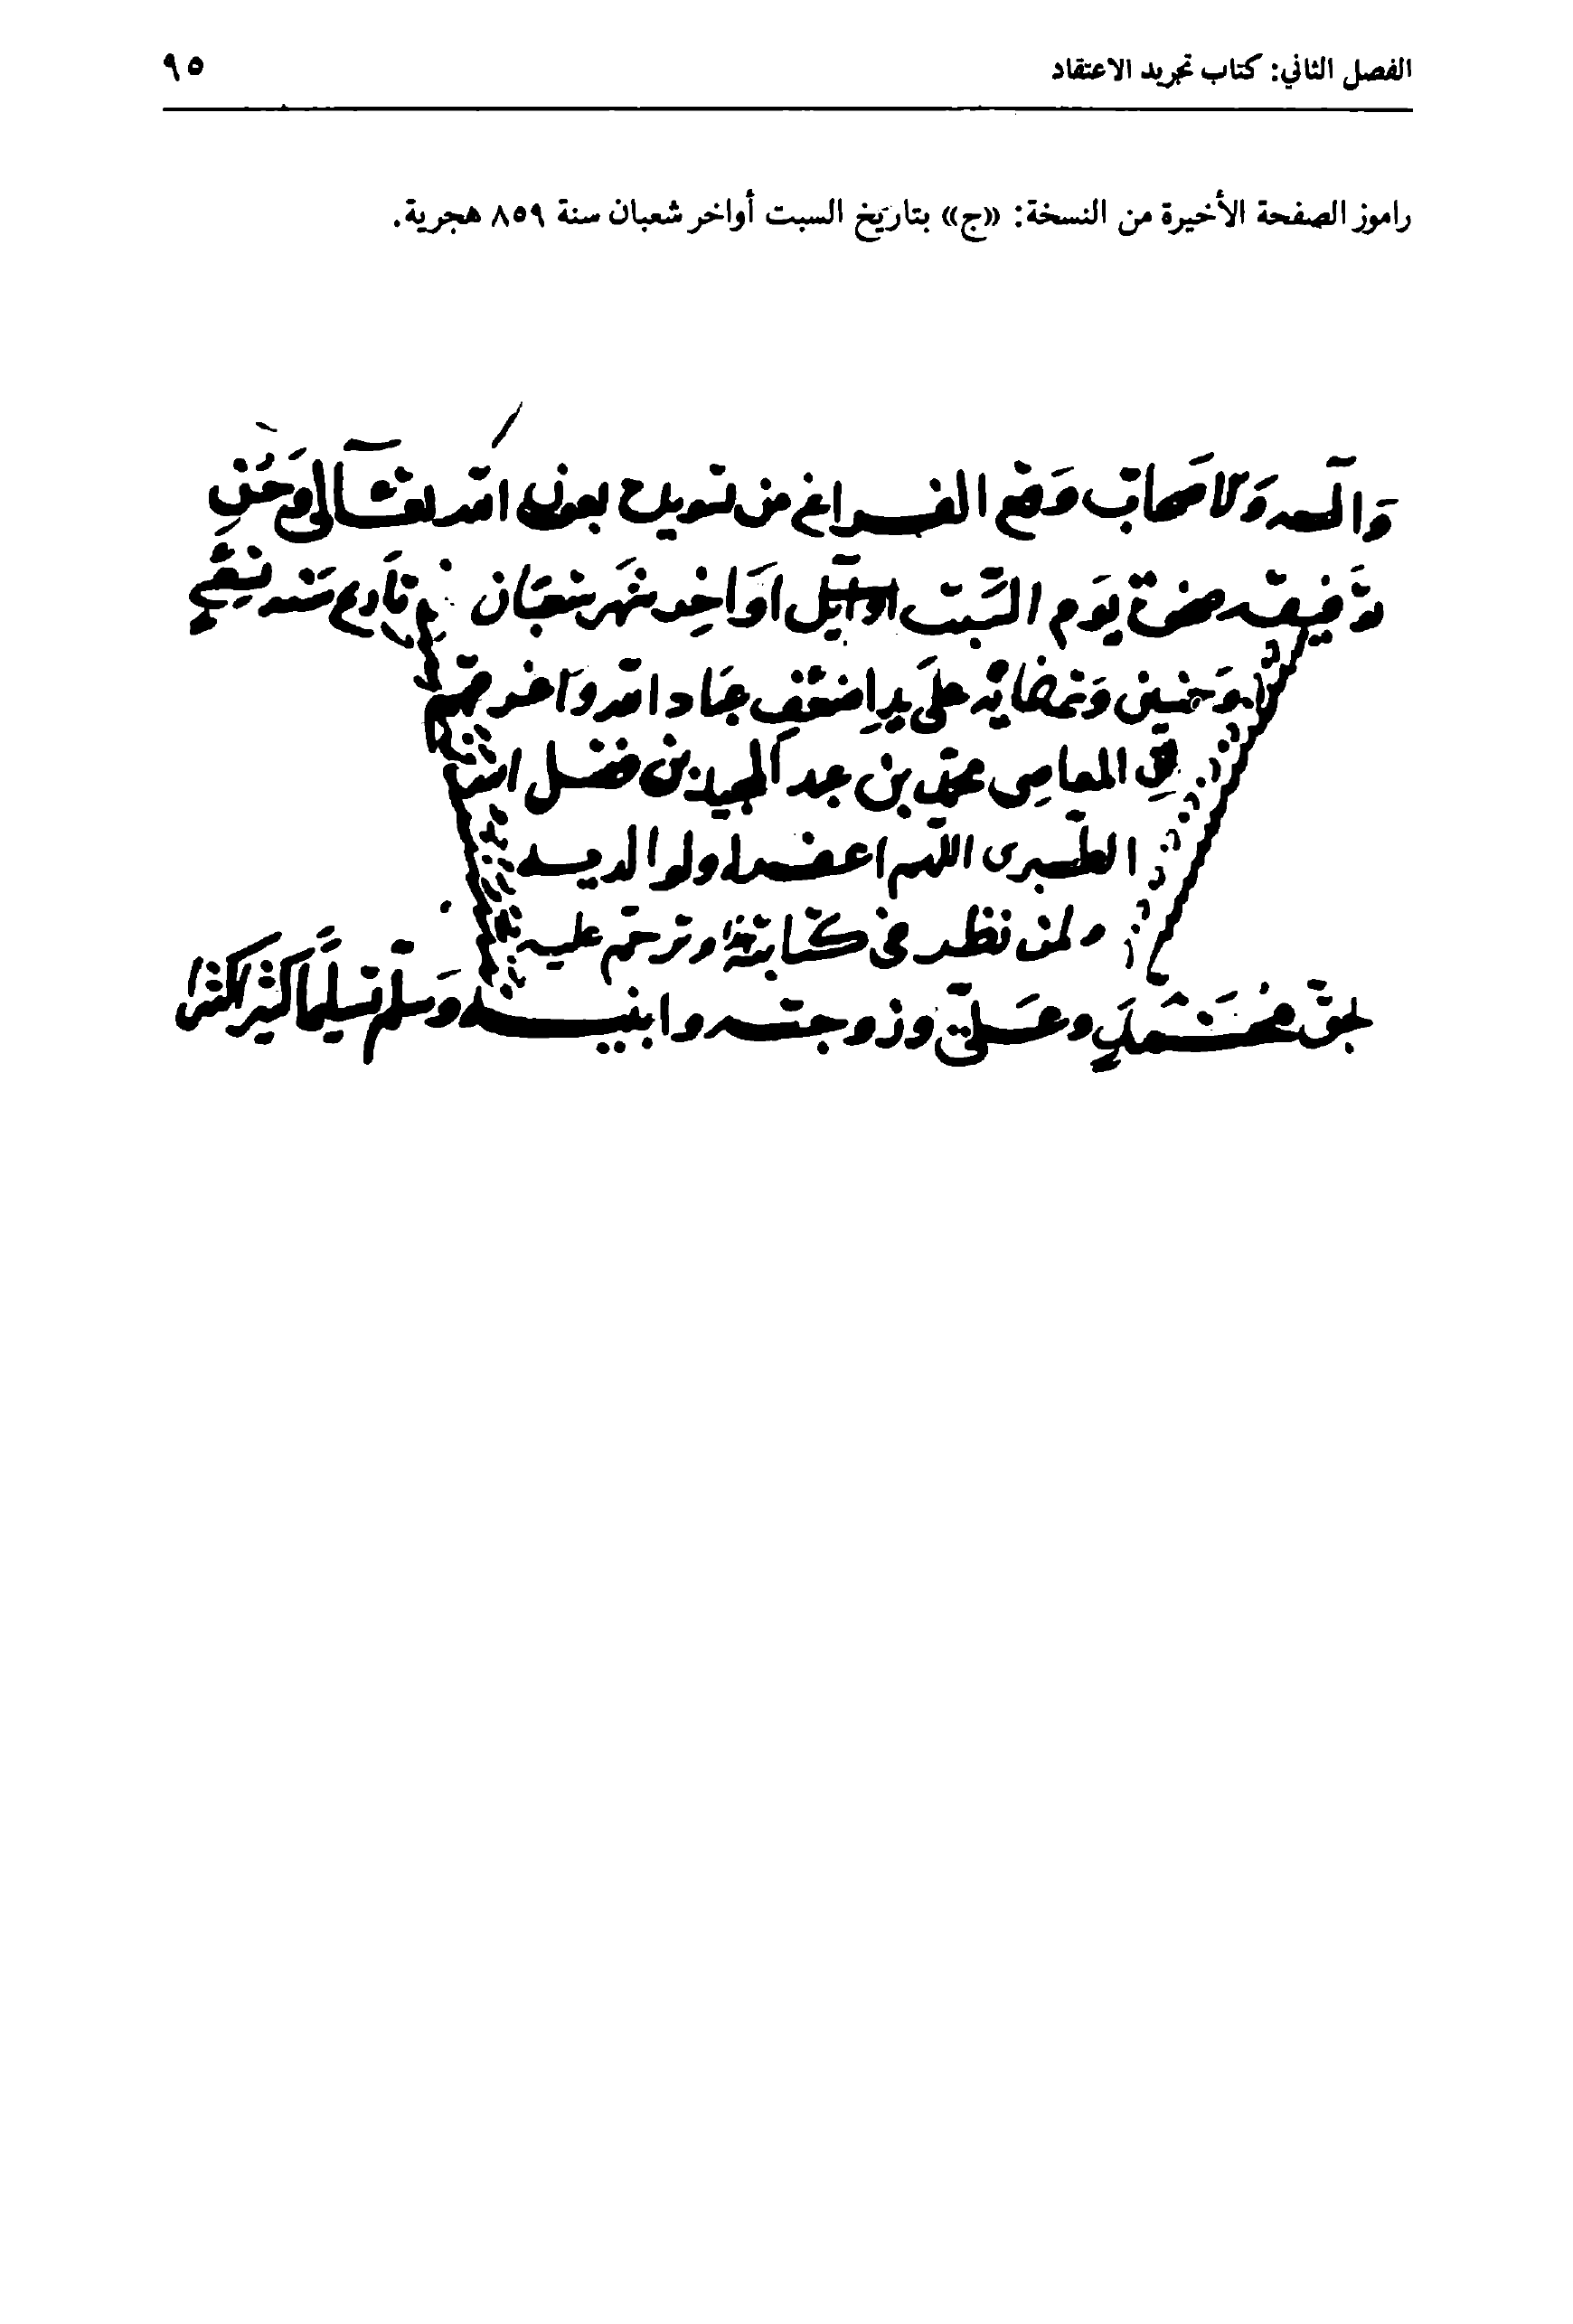 الفصل الثاني: كتاب تجريد الاعتقاد ٩٥
راموز الصفحة الأخيرة من النسخة: «ج» بتاريخ السبت أواخر شعبان سنة ٨٥٩ هجرية.
وآله ولأصحابه وقع الفراغ من تسويده بعون الله تعالى وحسن
توفيقه ضحوة يوم السبت اواخر شهر شعبان في تاريخ سنة تسع
وخمسين وثمانمائة على يد اضعف عباد الله واحقرهم
المعاصى محمد بن عبد المجيد بن فضل الله
الطبرى اللهم اغفر له ولوالديه
ولمن نظر في كتابته وترحم عليه
بحق محمد وعلي وزوجته وابنيه وسلم تسليما كثيرا كثيرا